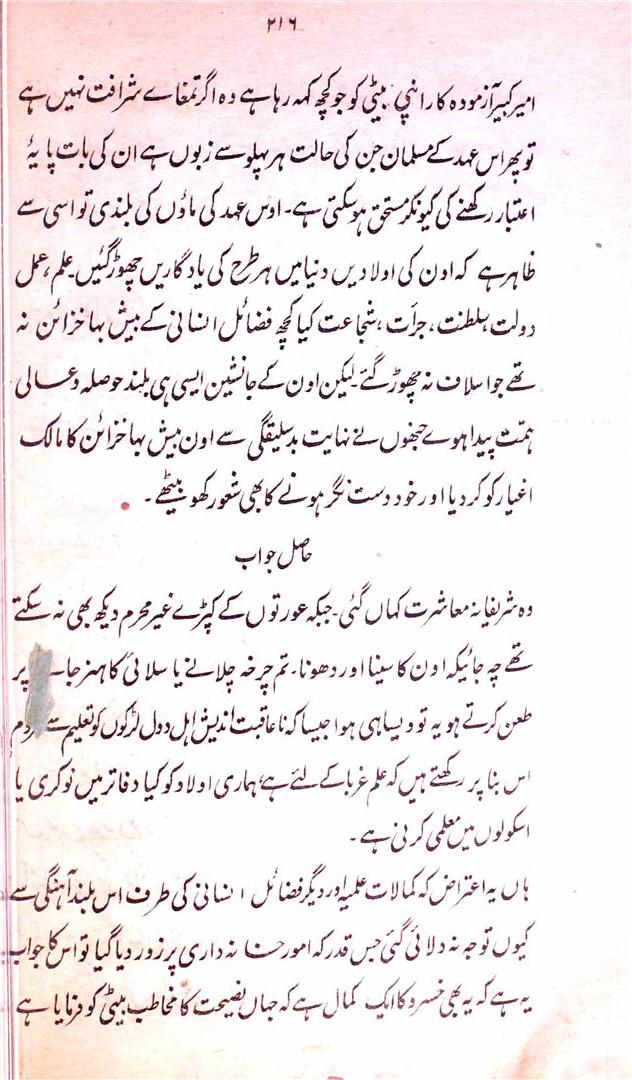 ۲۱۶
امیر کبیر آزمودہ کار اپنی بیٹی کو جو کچھ کہہ رہا ہے وہ اگر تمغاے شرافت نہیں ہے
تو پھر اس عہد کے مسلمان جن کی حالت ہر پہلو سے زبوں ہے ان کی بات پایۂ
اعتبار رکھنے کی کیونکر مستحق ہوسکتی ہے۔ اوس عہد کی ماؤں کی بلندی تو اسی سے
ظاہر ہے کہ اون کی اولادیں دنیا میں ہر طرح کی یادگاریں چھوڑ گئیں۔ علم، عمل
دولت، سلطنت، جرأت، شجاعت کیا کچھ فضائل انسانی کے بیش بہا خزائن نہ
تھے جو اسلاف نہ چھوڑ گئے۔ لیکن اون کے جانشین ایسی ہی بلند حوصلہ و عالی
ہمت پیدا ہوے جنھوں نے نہایت بدسلیقگی سے اون بیش بہا خزائن کا مالک
اغیار کو کر دیا اور خود دست نگر ہونے کا بھی شعور کھو بیٹھے۔
حاصل جواب
وہ شریفانہ معاشرت کہاں گئی۔ جبکہ عورتوں کے کپڑے غیر محرم دیکھ بھی نہ سکتے
تھے چہ جائیکہ اون کا سینا اور دھونا۔ تم چرخہ چلانے یا سلائی کا ہنر جا پر
طعن کرتے ہو یہ تو ویسا ہی ہوا جیسا کہ ناعاقبت اندیش اہل دول لڑکوں کو تعلیم سے
اس بنا پر رکھتے ہیں کہ علم غربا کے لئے ہے، ہماری اولاد کو کیا دفاتر میں نوکری یا
اسکولوں میں معلمی کرنی ہے۔
ہاں یہ اعتراض کہ کمالات علمیہ اور دیگر فضائل انسانی کی طرف اس بلند آہنگی سے
کیوں توجہ نہ دلائی گئی جس قدر کہ امور خانہ داری پر زور دیا گیا تو اس کا جواب
یہ ہے کہ یہ بھی خسرو کا ایک کمال ہے کہ جہاں نصیحت کا مخاطب بیٹی کو فرمایا ہے